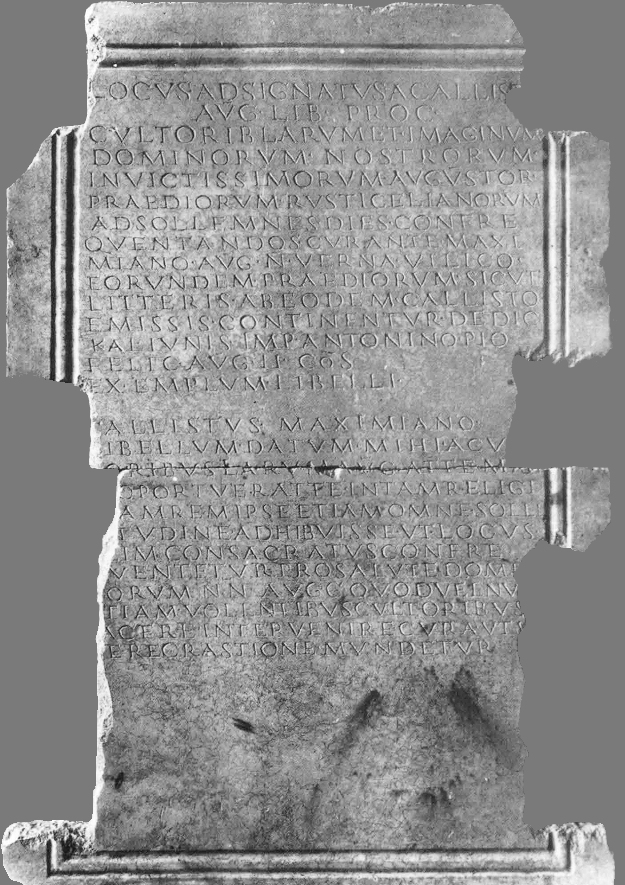 LOCVS·ADSIGNATVS·A·CALLIS
AVG·LIB·PROC
CVLTORIB·LARVM·ET·IMAGINVM
DOMINORVM·NOSTRORVM
INVICTISSIMORVM·AVGVSTOR
PRAEDIORVM·RVSTICELIANORVM
AD·SOLLEMNES·DIES·CONFRE
QVENTANDOS·CVRANTE·MAXI
MIANO·AVG·N·VERNA·VILICO
EORVNDEM·PRAEDIORVM·SICVT
LITTERIS·AB·EODEM·CALLISTO
EMISSIS·CONTINENTVR·DEDIC
KAL·IVNIS·IMP·ANTONINO·PIO
FELIC·AVG·II COS
EXEMPLVM·LIBELLI
ALLISTVS·MAXIMIANO
IBELLVM·DATVM·MIHI·A·CV
ORIBVS·LARVM AVG ATTEM
OPORTVERAT·TE·IN·TAM·RELIGI
AM·REM·IPSE·ETIAM·OMNE·SOLL
TVDINE·ADHIBVISSE·VT·LOCVS
IM·CONSACRATVS·CONFRE
VENTETVR·PRO·SALVTE·DOMI
ORVM·NN·AVGG·QVOD·VEL·NV
TIAM·VOLENTIBVS·CVLTORIBVS
ACERE·INTERVENIRE·CVRA·VT
ERE·CRASTIONE·MVNDETVR